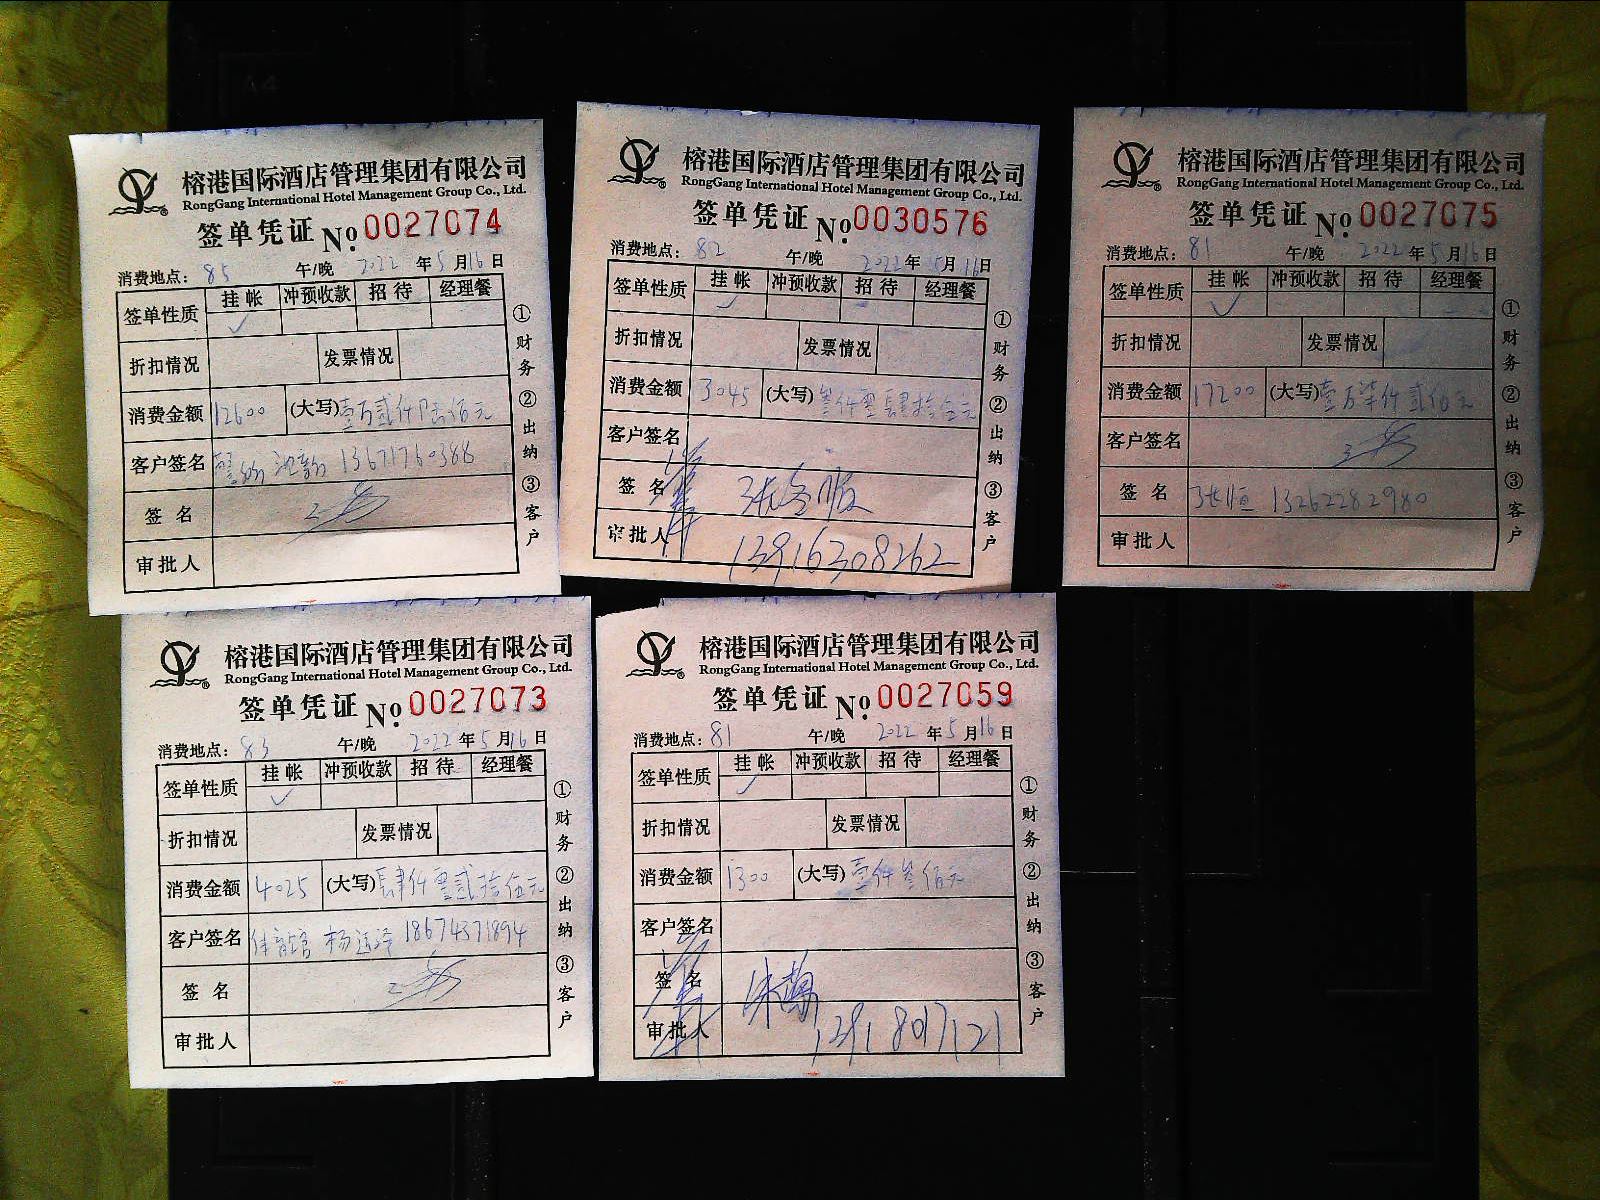 榕港国际酒店管理集团有限公司
RongGang International Hotel Management Group Co., Ltd.
签单凭证 No. 0027074
消费地点: 85 午/晚 2022年5月16日
签单性质 挂帐 冲预收款 招待 经理餐
✓
折扣情况 发票情况
消费金额 12600 (大写) 壹万贰仟陆佰元
客户签名 13671760388
签名
审批人
①财务 ②出纳 ③客户
榕港国际酒店管理集团有限公司
RongGang International Hotel Management Group Co., Ltd.
签单凭证 No. 0030576
消费地点: 82 午/晚 2022年5月16日
签单性质 挂帐 冲预收款 招待 经理餐
✓
折扣情况 发票情况
消费金额 3045 (大写) 叁仟零肆拾伍元
客户签名
签名
审批人 13916308262
①财务 ②出纳 ③客户
榕港国际酒店管理集团有限公司
RongGang International Hotel Management Group Co., Ltd.
签单凭证 No. 0027075
消费地点: 81 午/晚 2022年5月16日
签单性质 挂帐 冲预收款 招待 经理餐
✓
折扣情况 发票情况
消费金额 17200 (大写) 壹万柒仟贰佰元
客户签名
签名 张恒 13262282980
审批人
①财务 ②出纳 ③客户
榕港国际酒店管理集团有限公司
RongGang International Hotel Management Group Co., Ltd.
签单凭证 No. 0027073
消费地点: 83 午/晚 2022年5月16日
签单性质 挂帐 冲预收款 招待 经理餐
✓
折扣情况 发票情况
消费金额 4025 (大写) 肆仟零贰拾伍元
客户签名 体育馆 杨 18674371894
签名
审批人
①财务 ②出纳 ③客户
榕港国际酒店管理集团有限公司
RongGang International Hotel Management Group Co., Ltd.
签单凭证 No. 0027059
消费地点: 81 午/晚 2022年5月16日
签单性质 挂帐 冲预收款 招待 经理餐
✓
折扣情况 发票情况
消费金额 1300 (大写) 壹仟叁佰元
客户签名
签名
审批人
①财务 ②出纳 ③客户